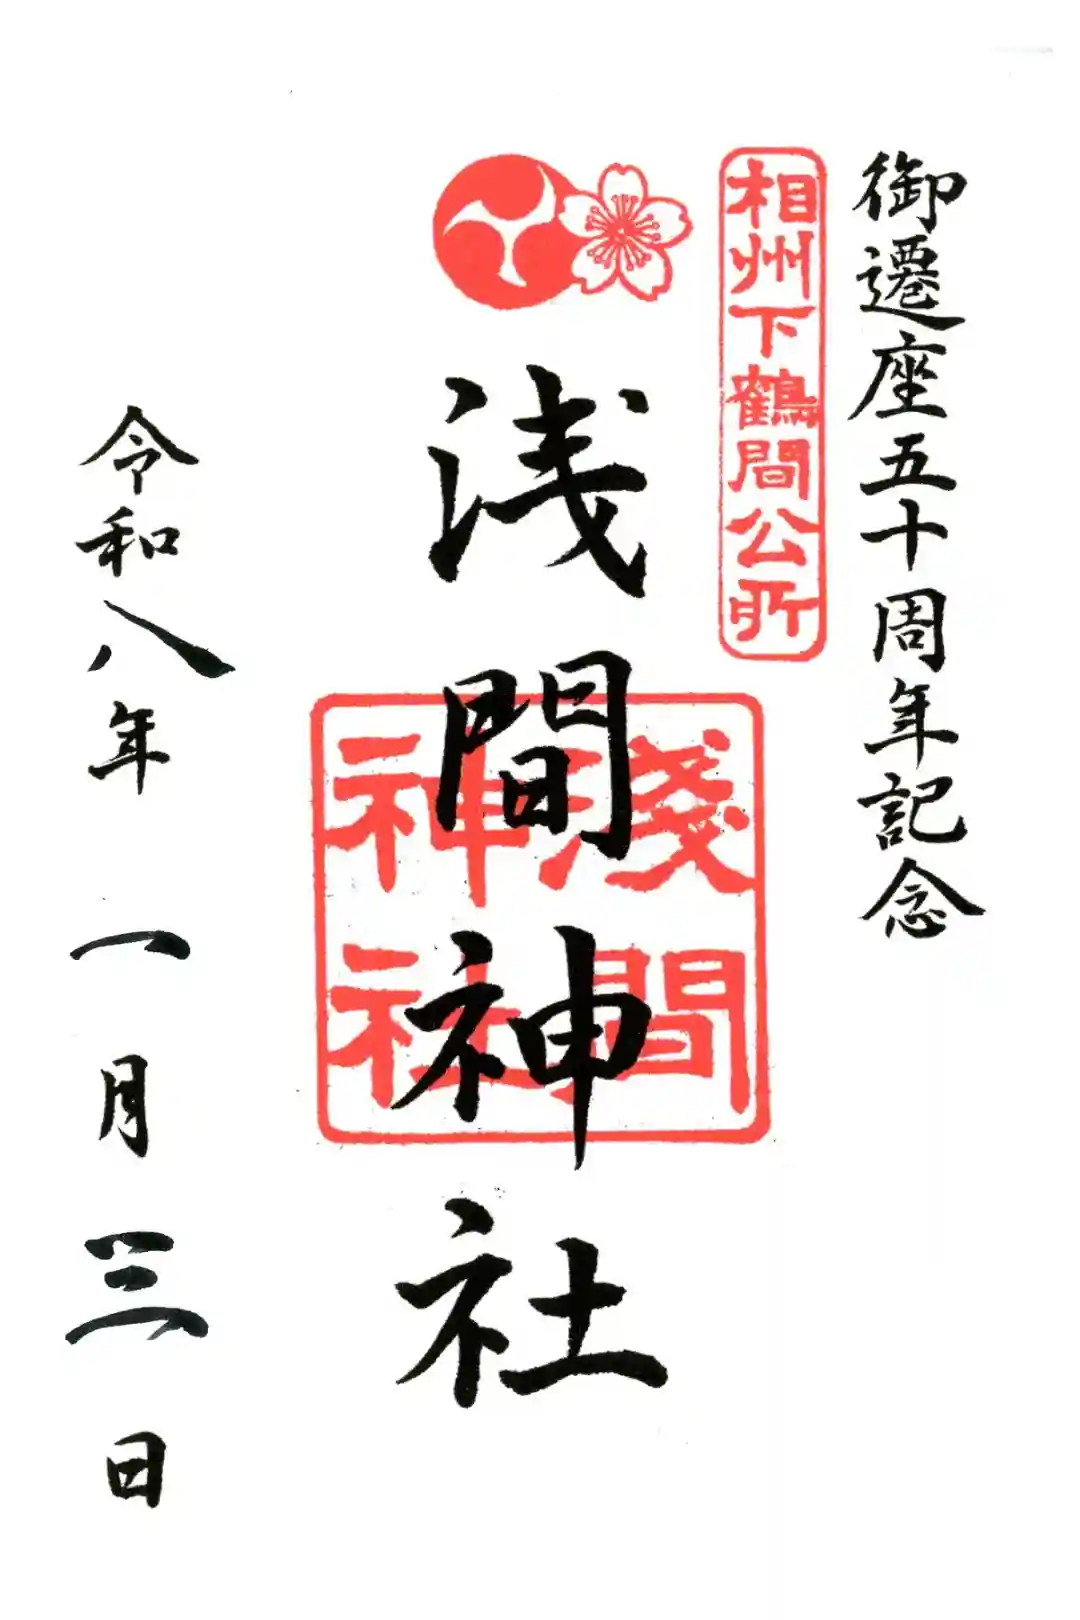 御遷座五十周年記念
相州下鶴間公所
浅間神社
淺間
神社
令和八年 一月三日